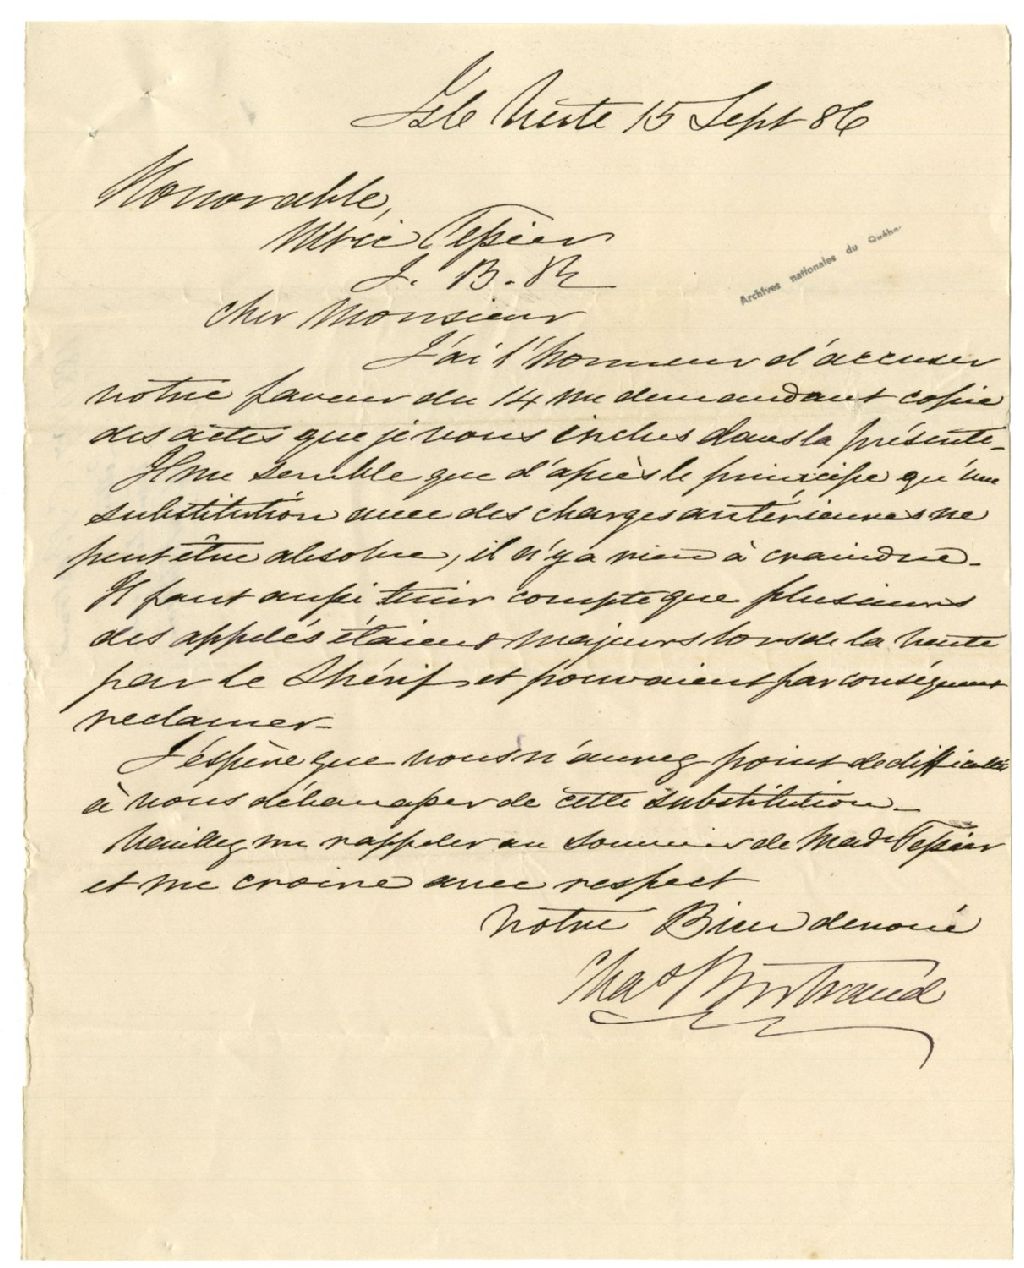 Isle Verte 15 Sept 86
Honorable,
Ulric Tessier
J. B. R
Archives nationales du Québec
Cher Monsieur
J'ai l'honneur d'accuser
votre faveur du 14 me demandant copie
des actes que je vous inclus dans la présente-
Il me semble que d'après le principe qu'une
substitution avec des charges antérieures ne
peut être absolue, il n'y a rien à craindre-
Il faut aussi tenir compte que plusieurs
des appelés étaient majeurs lors de la vente
par le Shérif et pouvaient par conséquent
reclamer-
J'éspère que vous n'aurez point de difficultés
à vous débarasser de cette substitution-
Veuillez me rappeler au souvenir de Made Tessier
et me croire avec respect
Votre Bien devoué
Chas Bertrand